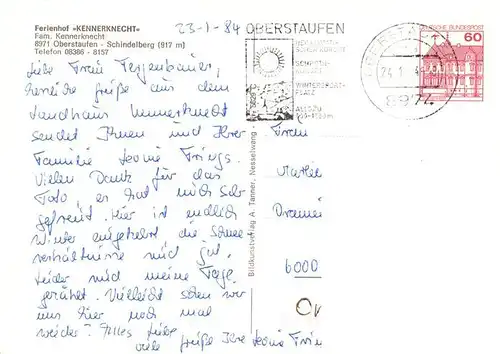 Ferienhof »KENNERKNECHT«
Fam. Kennerknecht
8971 Oberstaufen - Schindelberg (917 m)
Telefon 08386 - 8157
23-1-84
OBERSTAUFEN
HEILKLIMATISCHER
WINTERSPORT-
PLATZ
ALLGÄU
DEUTSCHE BUNDESPOST
60
8974
Liebe Frau
herzliche Grüße aus dem
Landhaus
sendet Ihnen und Ihrer
Familie Leonie Frings.
Vielen Dank für das
Foto es hat mich sehr
gefreut. Hier ist endlich
Winter eingekehrt die Schnee
verhältnisse sind gut.
Leider sind meine Tage
gezählt. Vielleicht sehen wir
uns hier noch mal
wieder? Alles Liebe
viele Grüße Ihre Leonie Frin
Frau
6000
Bildkunstverlag A. Tanner, Nesselwang -